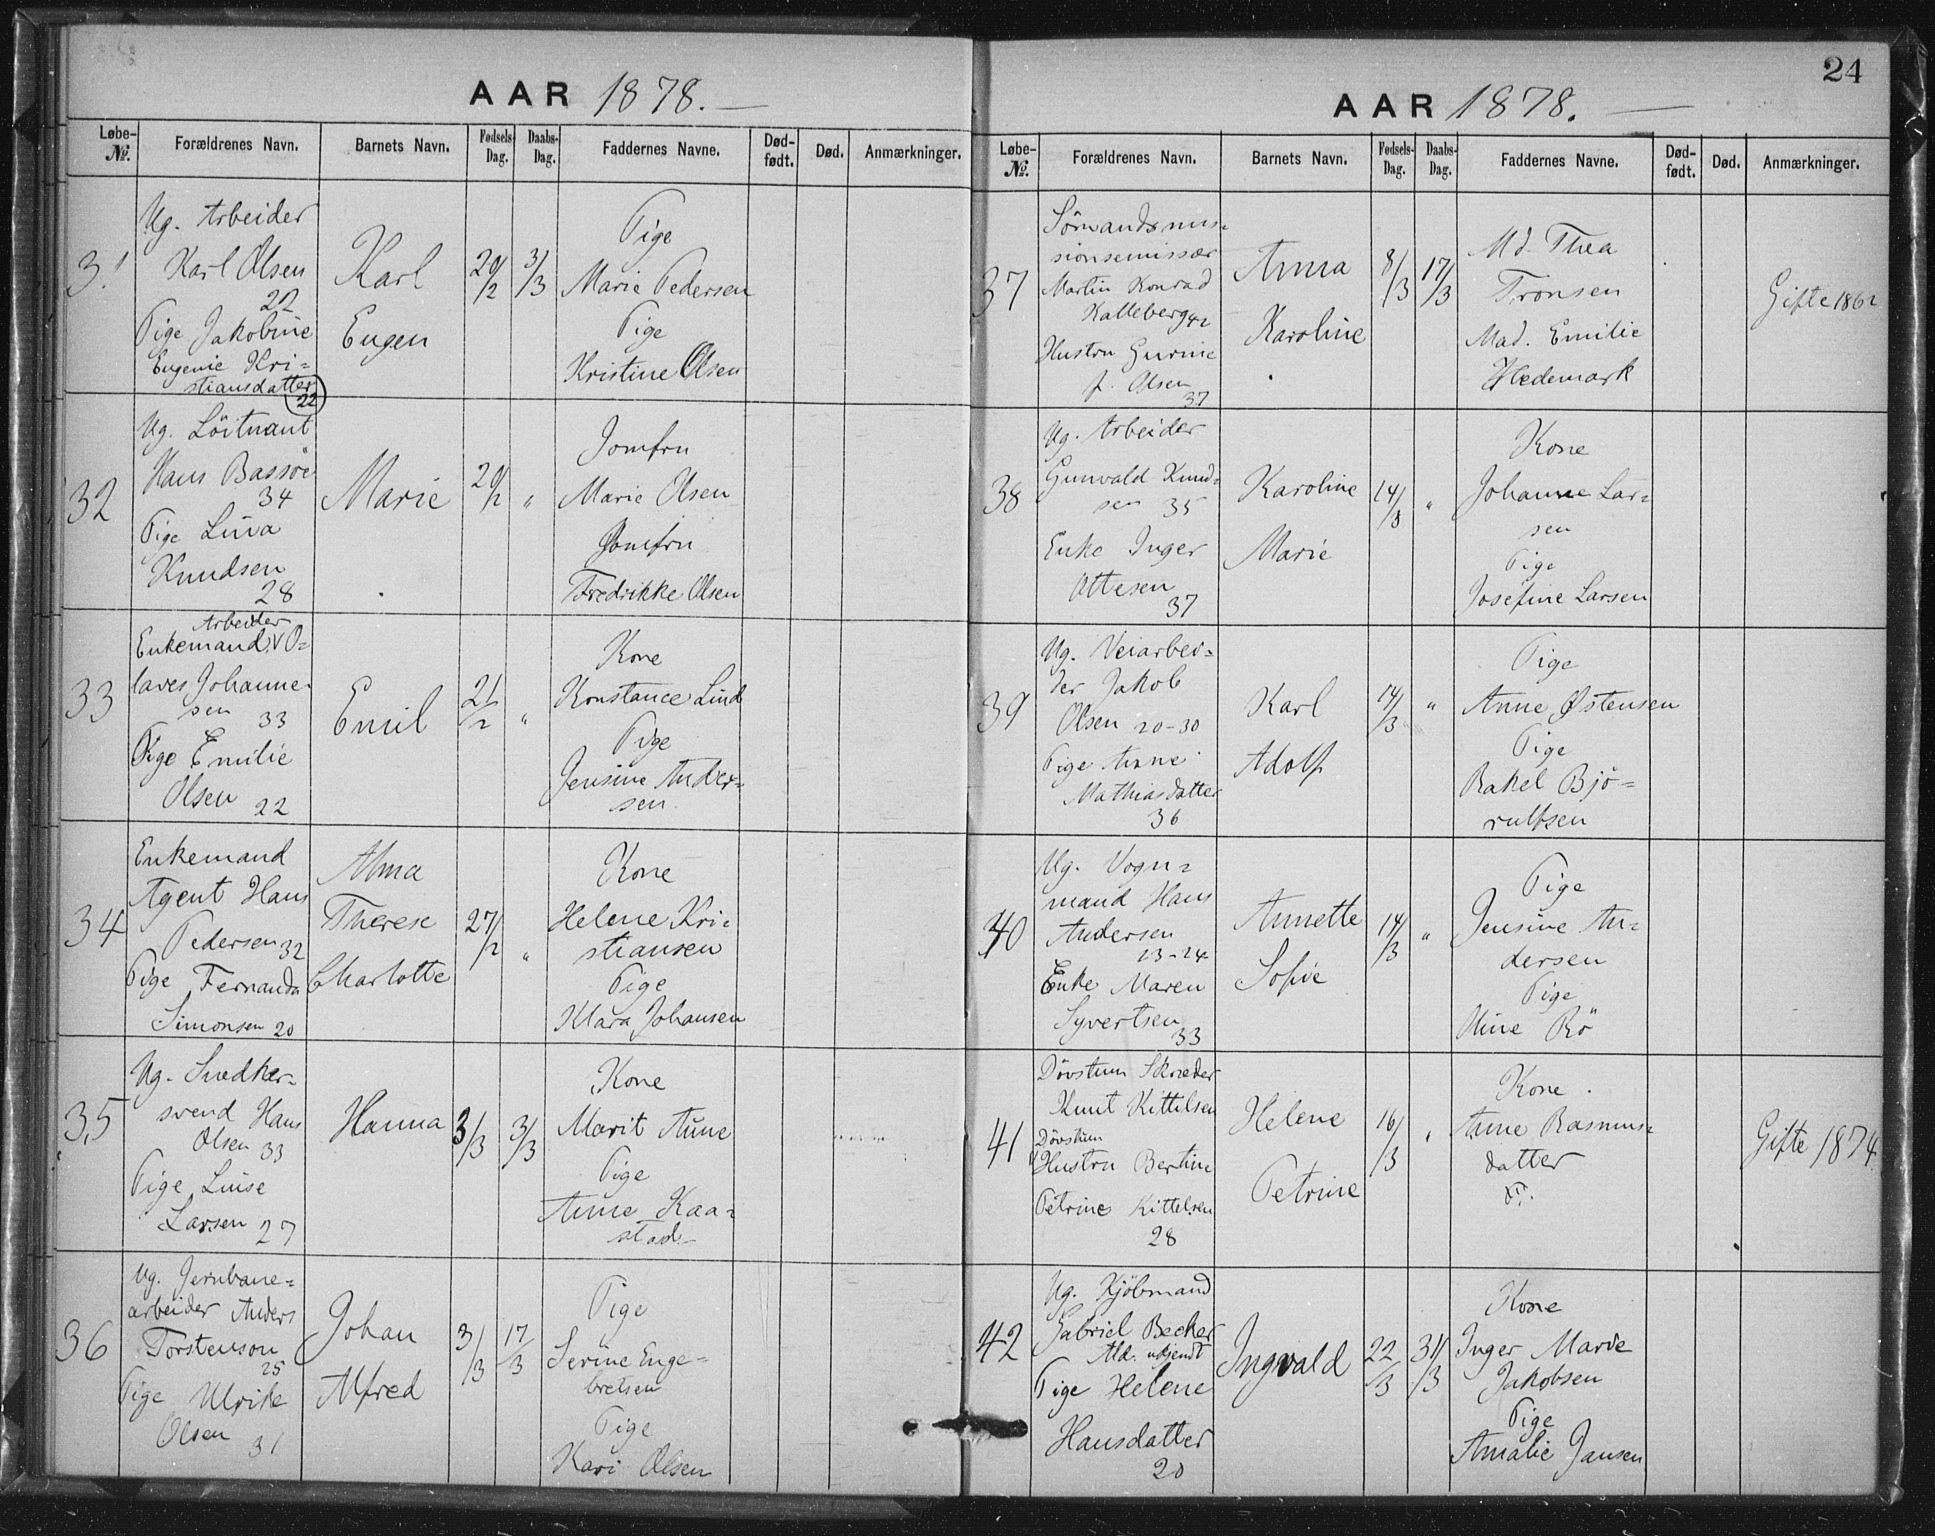 AAR 1878.
Løbe-No. Forældrenes Navn. Barnets Navn. Fødsels-Dag. Daabs-Dag. Faddernes Navne. Død-født. Død. Anmærkninger.
31
Ug. Arbeider
Karl Olsen
22
Pige Jakobine
Eugenie Kri=
stiansdatter
22
Karl
Eugen
20/2
3/3
Pige
Marie Pedersen
Pige
Kristine Olsen
32
Ug. Löitnant
Hans Bassöe
34
Pige Lina
Knudsen
28
Marie
20/2
"
Jomfru
Marie Olsen
Jomfru
Fredrikke Olsen
33
Arbeider
Enkemand O=
laves Johanne
sen 33
Pige Emilie
Olsen 22
Emil
21/2
"
Kone
Konstance Lind
Pige
Jensine Ander=
sen.
34
Enkemand
Agent Hans
Pedersen 32
Pige Fernanda
Simonsen 20
Alma
Therese
Charlotte
27/2
"
Kone
Helene Kri=
stiansen
Pige
Klara Johansen
35
Ug. Snedker=
svend Hans
Olsen 33
Pige Luise
Larsen 27
Hanna
3/3
3/3
Kone
Marit Aune
Pige
Anne Kaa=
stad
36
Ug. Jernbane=
arbeider Anders
Torstenson
25
Pige Ulrike
Olsen 31
Johan
Alfred
3/3
17/3
Pige
Serine Enge=
bretsen
Pige
Kari Olsen
24
AAR 1878.
Løbe-No. Forældrenes Navn. Barnets Navn. Fødsels-Dag. Daabs-Dag. Faddernes Navne. Død-født. Død. Anmærkninger.
37
Sömandsmis=
sionsemissær
Martin Konrad
Kalleberg 42
Hustru Gurine
f. Olsen
37
Anna
Karoline
8/3
17/3
Md. Thea
Tronsen
Mad. Emilie
Hedemark
Gifte 1862
38
Ug. Arbeider
Gunvald Knud=
sen 35
Enke Inger
Ottesen
37
Karoline
Marie
14/3
"
Kone
Johanne Lar=
sen
Pige
Josefine Larsen
39
Ug. Veiarbei=
der Jakob
Olsen 20-30
Pige Anne
Mathiasdatter
36
Karl
Adolf
14/3
"
Pige
Anne Østensen
Pige
Rakel Bjö=
rulfsen
40
Ug. Vogn=
mand Hans
Andersen
23-24
Enke Maren
Syvertsen
33
Annette
Sofie
14/3
"
Pige
Jensine An=
dersen
Pige
Oline Rö
41
Dövstum Skræder
Knut Kittilsen
Dövstum
Hustru Bertine
Petrine Kittelsen
28
Helene
Petrine
16/3
"
Kone
Anne Rasmus=
datter
Gifte 1874
42
Ug. Kjöbmand
Gabriel Becker
Ald. ukjendt
Pige Helene
Hansdatter
20
Ingvald
22/3
31/3
Kone
Inger Marie
Jakobsen
Pige
Amalie Jansen